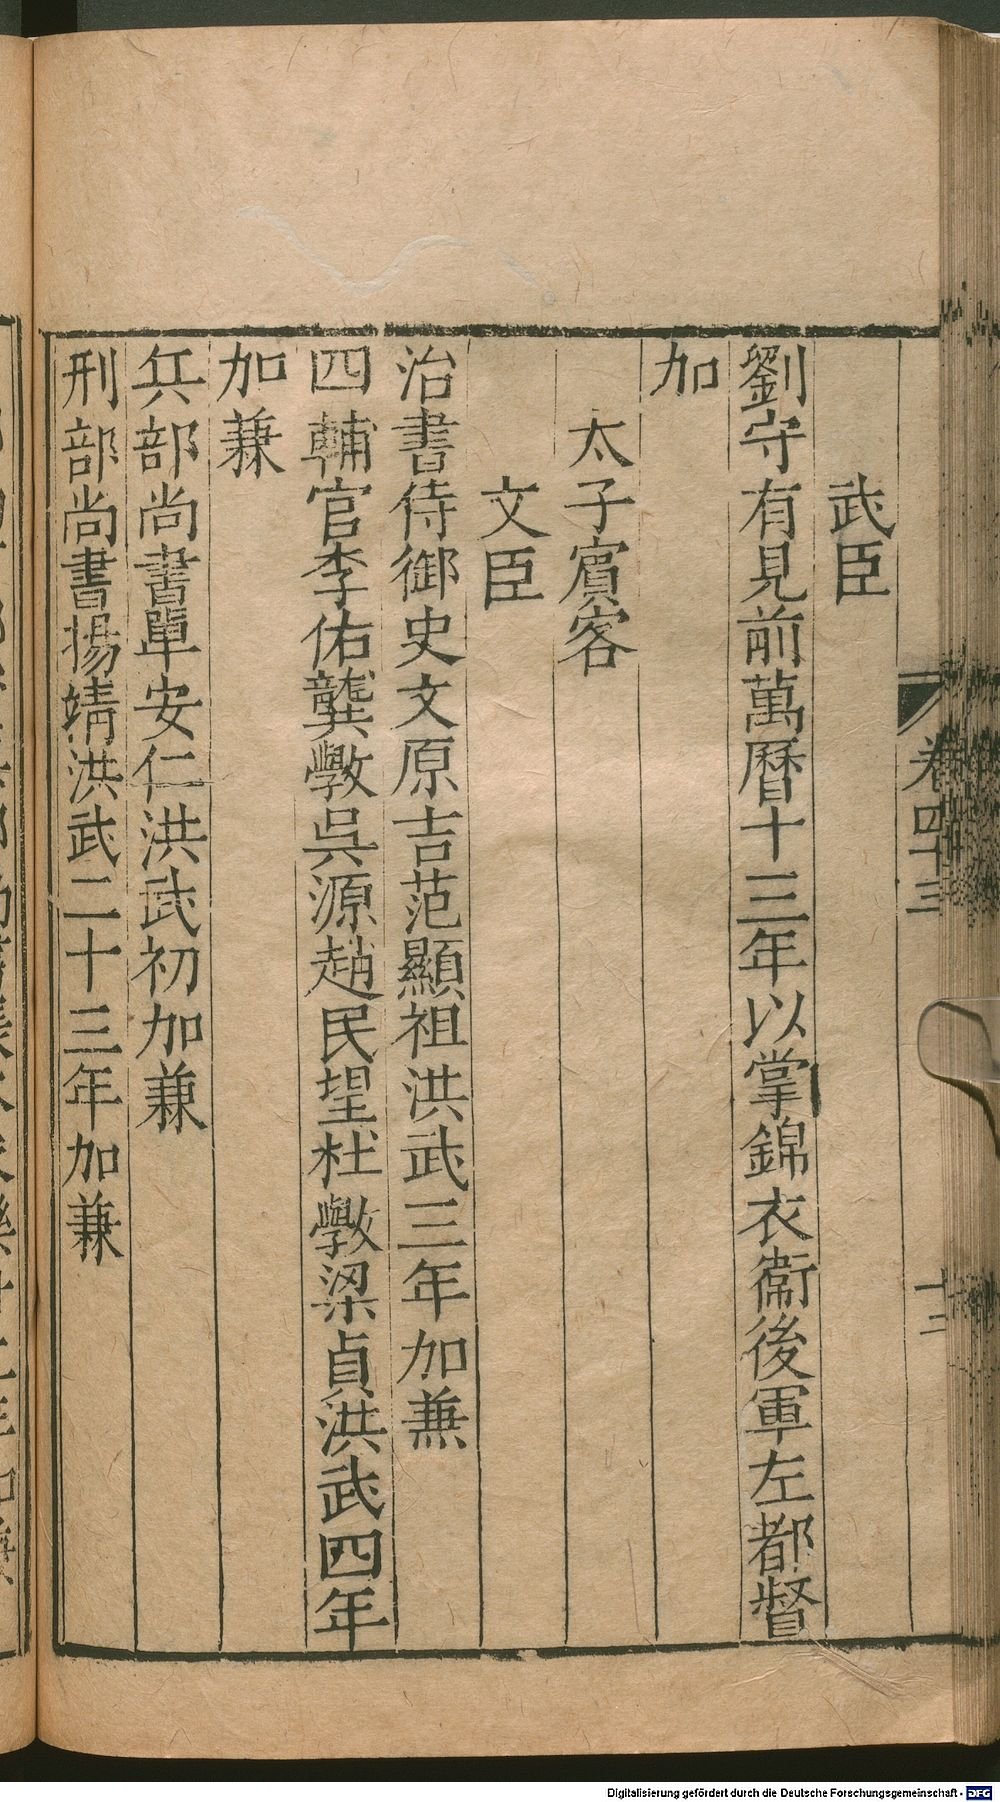 卷四十三
十二
武臣
劉守有見前萬曆十三年以掌錦衣衞後軍左都督
加
太子賓客
文臣
治書侍御史文原吉范顯祖洪武三年加兼
四輔官李佑龔斆吳源趙民望杜斆梁貞洪武四年
加兼
兵部尚書單安仁洪武初加兼
刑部尚書揚靖洪武二十三年加兼
Digitalisierung gefördert durch die Deutsche Forschungsgemeinschaft - DFG